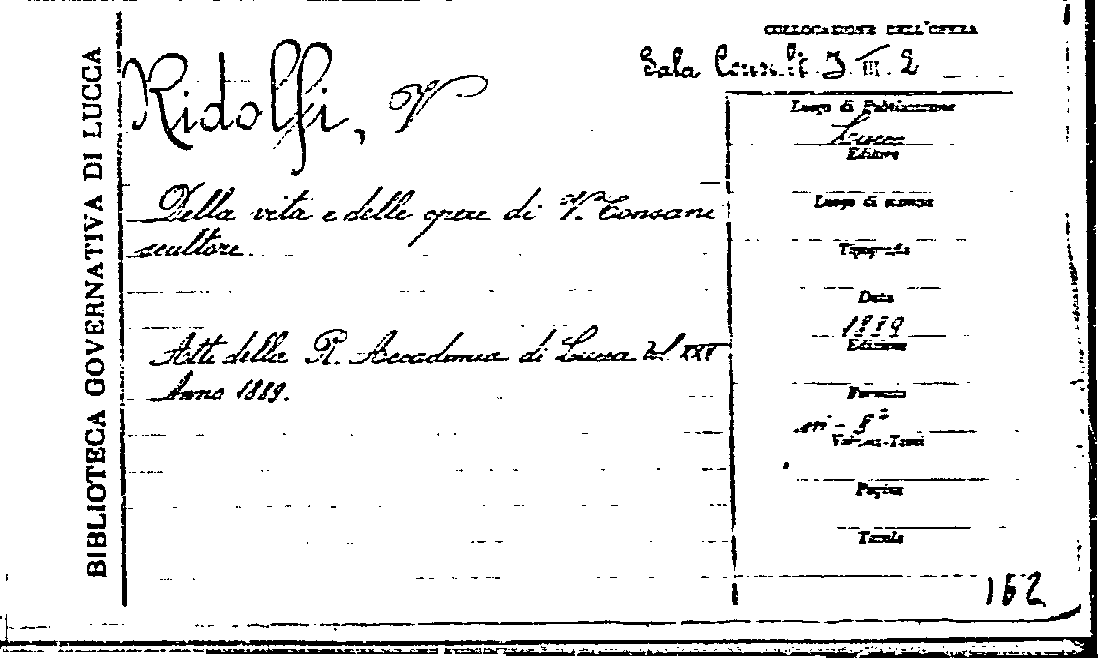 BIBLIOTECA GOVERNATIVA DI LUCCA
COLLOCAZIONE DELL'OPERA
Sala Consult. J. III. 2
Ridolfi, V
Della vita e delle opere di V. Consani
scultore.
Atti della R. Accademia di Lucca Vol XXV
Anno 1889.
Luogo di Pubblicazione
Lucca
Editore
Luogo di stampa
Tipografia
Data
1889
Edizione
Formato
in - 8°
Volumi-Tomi
Pagine
Tavole
162